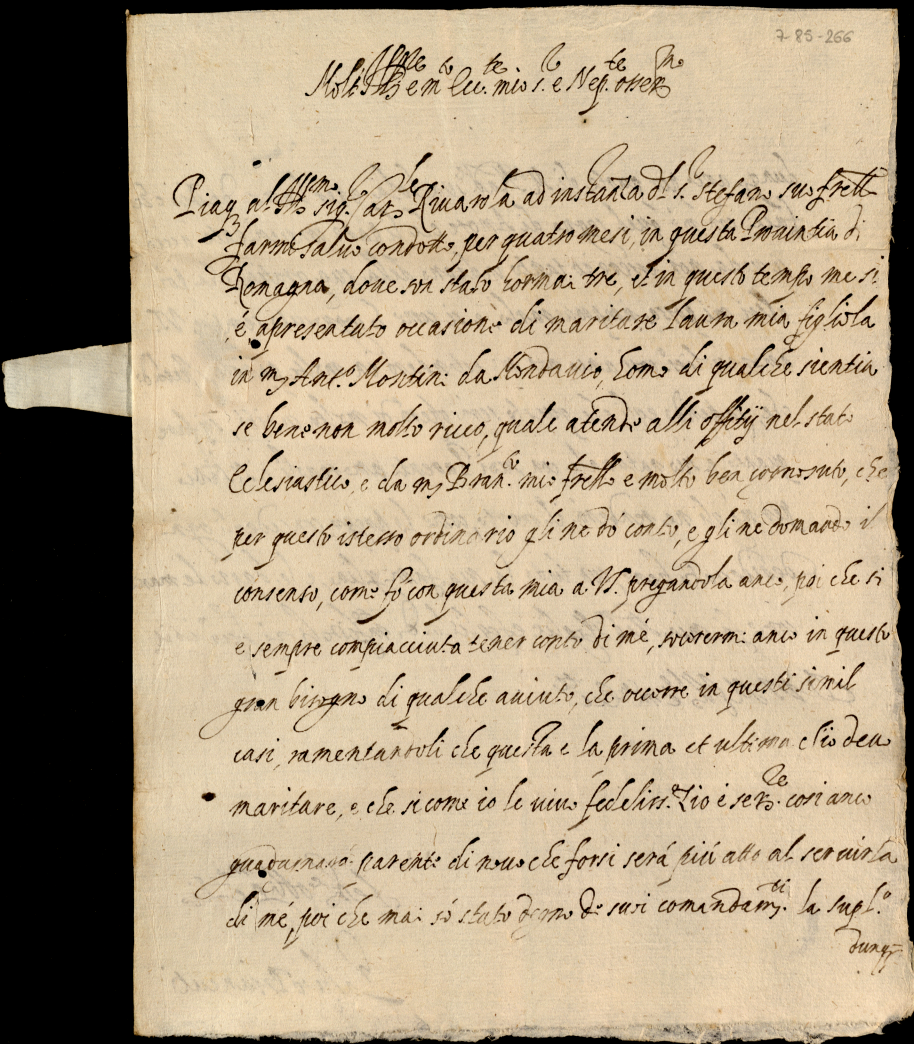 7-85-266
Molt' Ill.re et m.to Ecc.te mio s.r e Nep.te osser.mo
Piaq al Ill.mo sig.r Car.le Rivarola ad instanza d'l s.r stefano suo frello
farmi salvo condotto, per quatro mesi, in questa Provintia di
Romagna, dove son stato hormai tre, et in questo tempo me si
é apresentato occasione di maritare laura mia figliola
in m. Ant.o Montini da Mondavio, homo di qualche sientia
se bene non molto ricco, quale atende alli offitij nel stato
Eclesiastico, e da m. Bran.o mio frello e molto ben conosuto, che
per questo istesso ordinario gli ne dó conto, e gli ne domando il
consenso, come fó con questa mia a V.S. pregandola anco, poi che si
e sempre compiacciuta tener conto di mé, socorermi anco in questo
gran bisogno di qualche aviuto, che occorre in questi simil
casi, ramentandoli che questa e la prima et ultima ch'io devo
maritare, e che si come io le vivo fedeliss.o Zio e ser.re cosi anco
guadagnará parente di novo che forsi será più atto al servirla
di mé, poi che mai só stato degno de suoi comandam.ti la supl.o
dunq